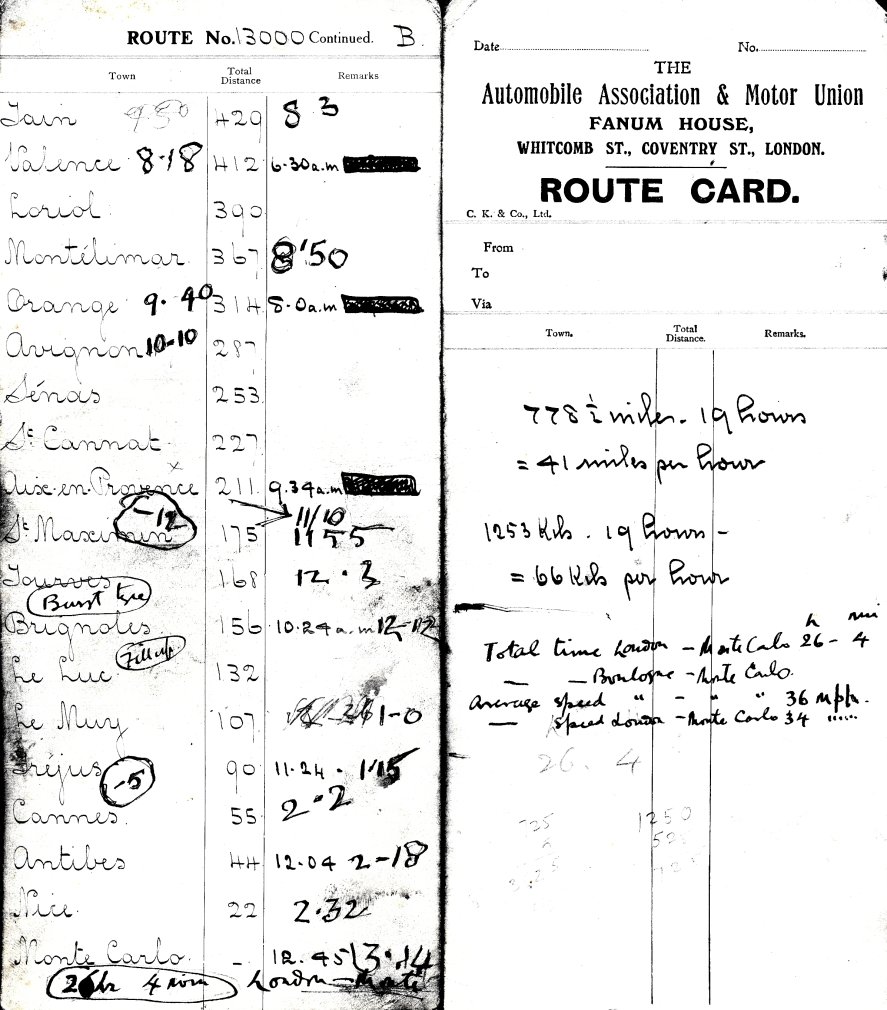 ROUTE No. 13000 Continued. B
Town Total Distance Remarks
Tain 9 30 429 8 3
Valence 8.18 412 6.30a.m
Loriol 390
Montélimar 367 8'50
Orange 9.40 314 8.0a.m
Avignon 10-10 287
Sénas 253
St Cannat 227
x
Aix-en-Provence 211 9.34a.m
-12 11/10
St Maximin 175 11 55
Tourves 168 12.3
Burst tyre
Brignoles 156 10.24a.m 12-
Fill up
Le Luc 132
Le Muy 107 1-0
Fréjus 90 11.24. 1'15
-5
Cannes 55 2.2
Antibes 44 12.04 2-18
Nice 22 2.32
Monte Carlo - 12.45 3.14
26hr 4 min London - Monte
Date No.
THE
Automobile Association & Motor Union
FANUM HOUSE,
WHITCOMB ST., COVENTRY ST., LONDON.
ROUTE CARD.
C. K. & Co., Ltd.
From
To
Via
Town. Total Distance. Remarks.
778 ½ miles. 19 hours
= 41 miles per hour
1253 Kils. 19 hours -
= 66 Kils per hour
h min
Total time London - Monte Carlo 26 - 4
— — Boulogne - Monte Carlo.
Average speed " - " " 36 mph.
— speed London - Monte Carlo 34 """
26. 4
25 1250